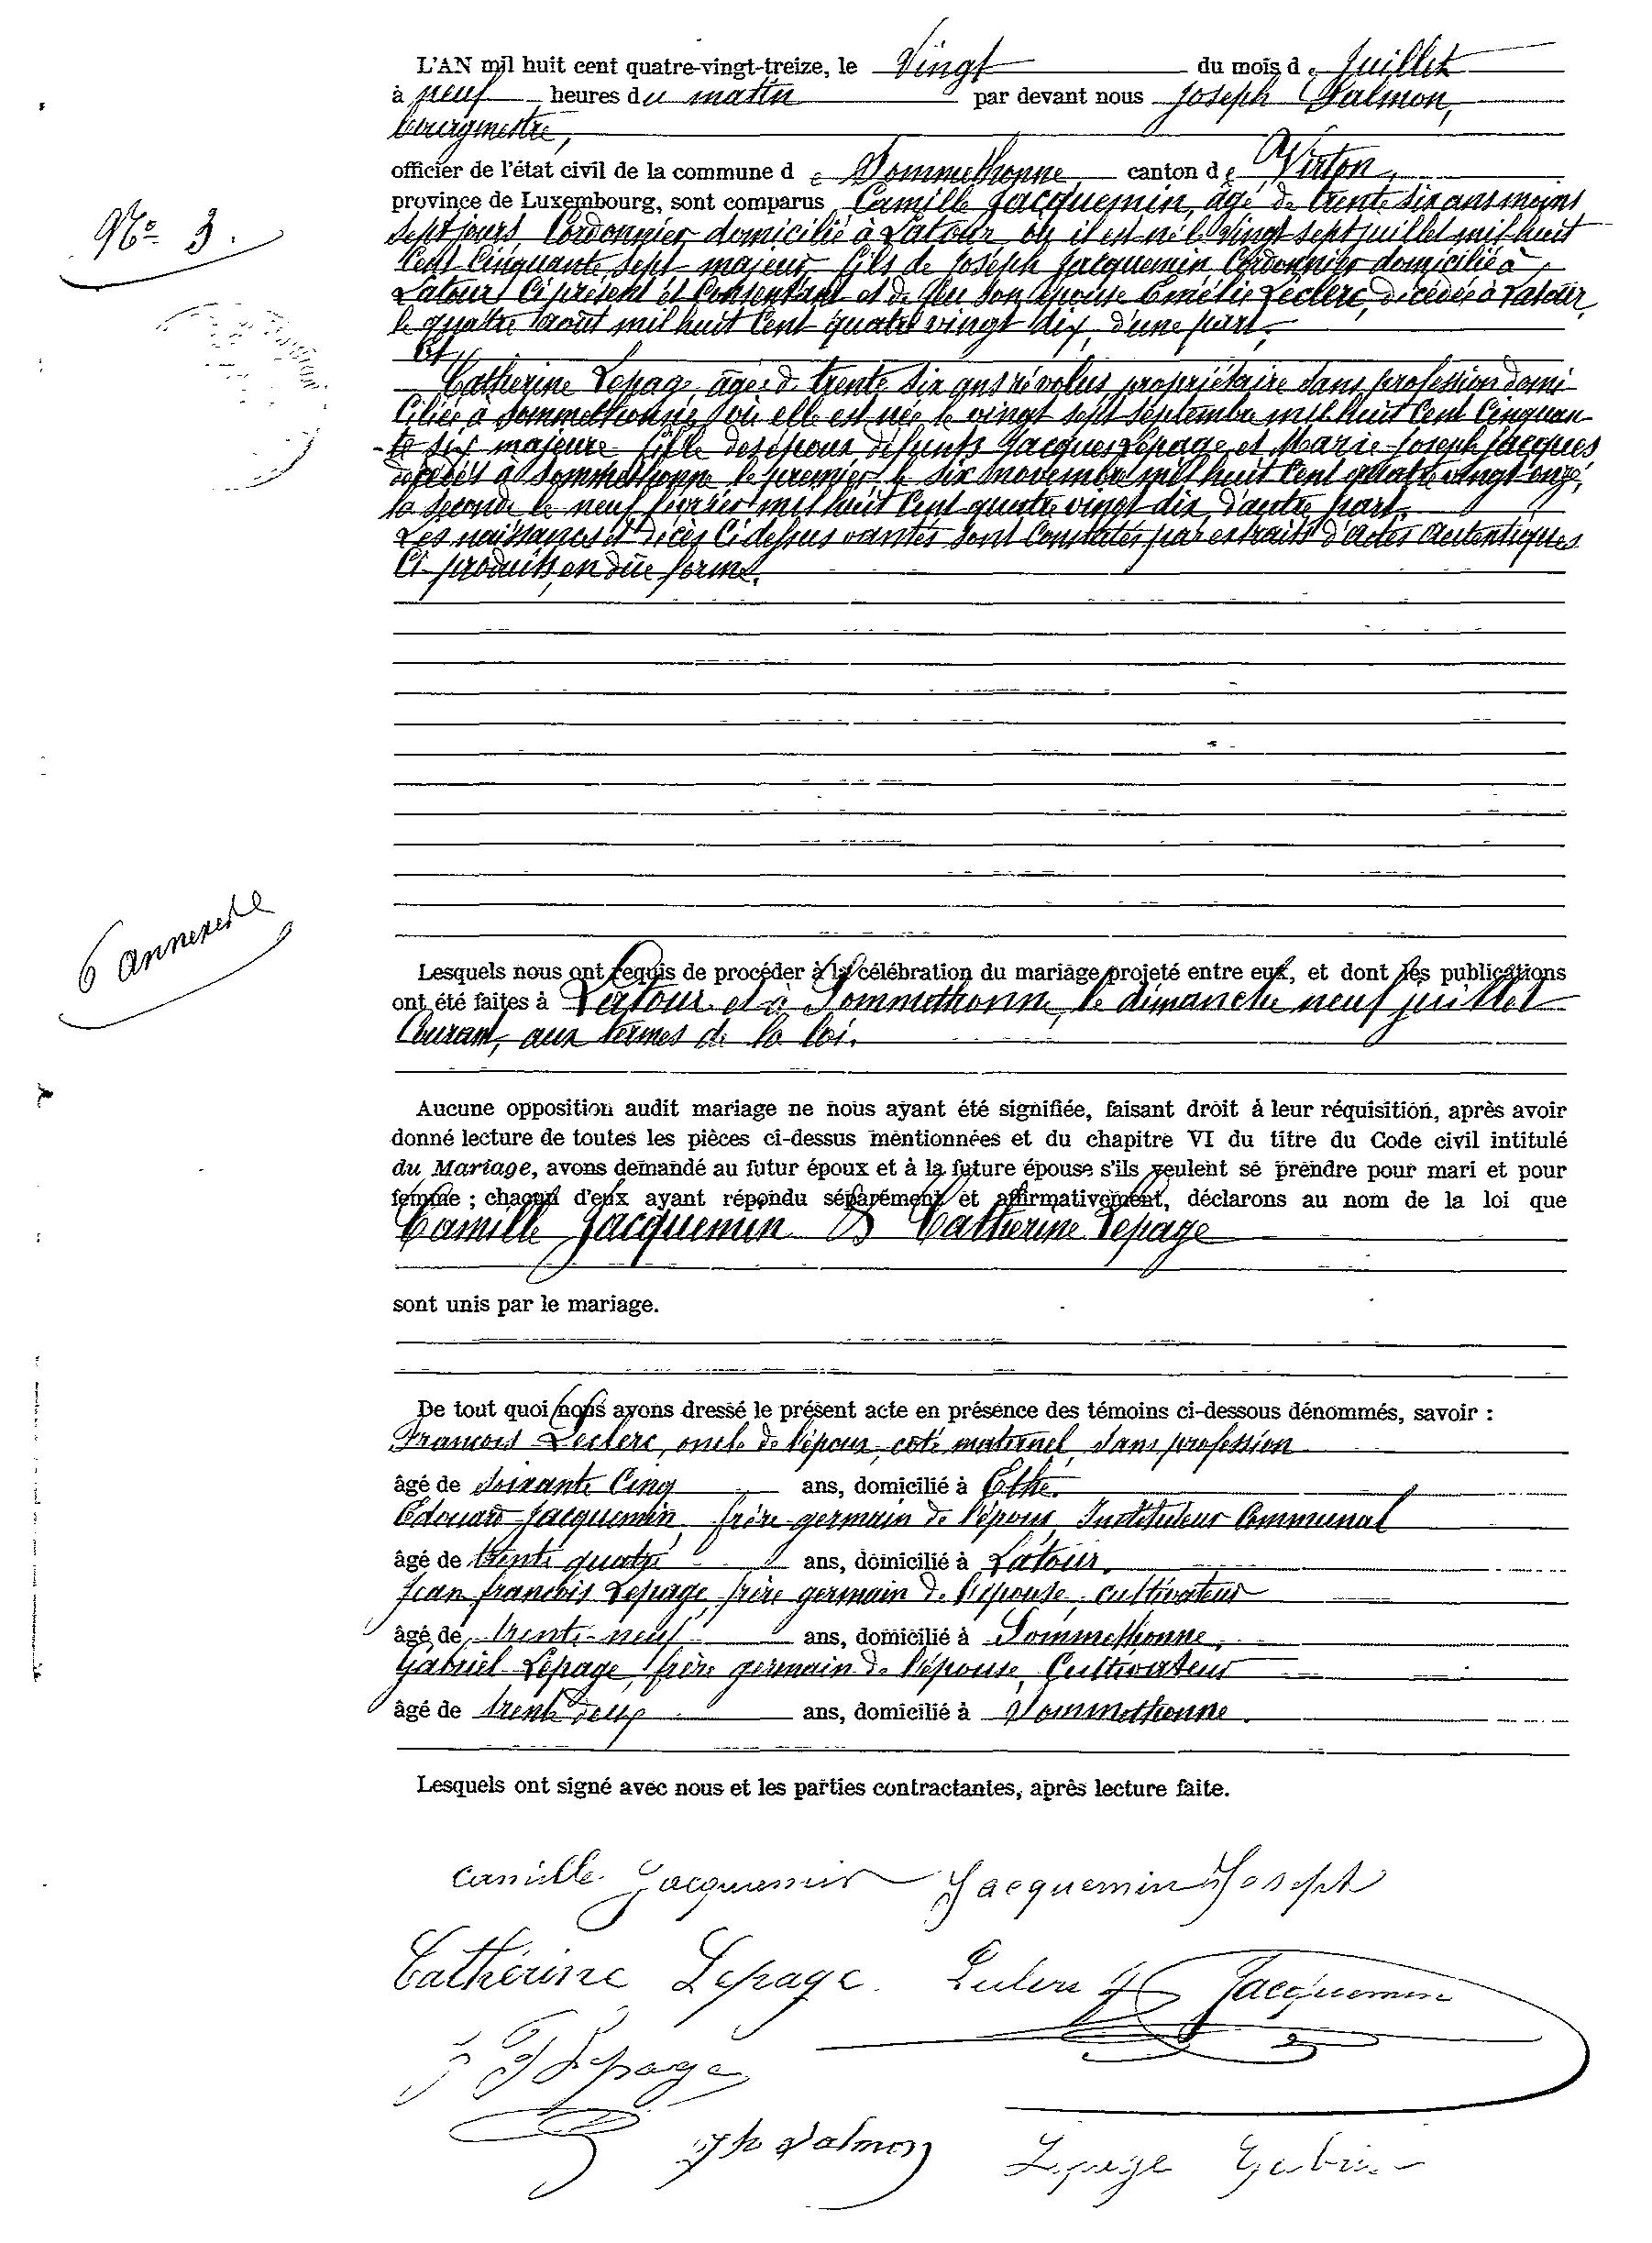 L'AN mil huit cent quatre-vingt-treize, le Vingt du mois de Juillet
à neuf heures du matin par devant nous Joseph Salmon,
bourgmestre,
officier de l'état civil de la commune de Sommethonne canton de Virton,
province de Luxembourg, sont comparus Camille Jacquemin, âgé de trente six ans moins
sept jours, Cordonnier domicilié à Latour, où il est né le Vingt sept juillet mil huit
Cent Cinquante sept majeur, fils de Joseph Jacquemin Cordonnier domicilié à
Latour Ci présent et Consentant et de feu son épouse Emélie Leclerc, décédée à Latour,
le quatre août mil huit Cent quatre vingt dix, d'une part,
Et
Catherine Lepage, âgée de trente six ans révolus, propriétaire sans profession domi
ciliée à Sommethonne, où elle est née le vingt sept septembre mil huit Cent Cinquan-
-te six majeure fille des époux défunts Jacques Lepage et Marie-Joseph Jacques
décédés à Sommethonne le premier, le six novembre mil huit Cent quatre vingt onze,
la seconde le neuf février mil huit Cent quatre vingt dix, d'autre part.
Les naissances et décès Ci dessus vantés sont Constatés par extraits d'actes autentiques
Ci produits, en dûe forme.
N° 3.
6 annexes
Lesquels nous ont requis de procéder à la célébration du mariage projeté entre eux, et dont les publications
ont été faites à Latour et à Sommethonne, le dimanche neuf juillet
Courant, aux termes de la loi.
Aucune opposition audit mariage ne nous ayant été signifiée, faisant droit à leur réquisition, après avoir
donné lecture de toutes les pièces ci-dessus mentionnées et du chapitre VI du titre du Code civil intitulé
du Mariage, avons demandé au futur époux et à la future épouse s'ils veulent se prendre pour mari et pour
femme ; chacun d'eux ayant répondu séparément et affirmativement, déclarons au nom de la loi que
Camille Jacquemin & Catherine Lepage
sont unis par le mariage.
De tout quoi nous avons dressé le présent acte en présence des témoins ci-dessous dénommés, savoir :
Francois Leclerc, oncle de l'époux, coté maternel, sans profession
âgé de soixante Cinq ans, domicilié à Ethe.
Edouard Jacquemin, frère germain de l'époux, Instituteur Communal
âgé de trente quatre ans, domicilié à Latour.
Jean francois Lepage, frère germain de l'épouse, cultivateur
âgé de trente-neuf ans, domicilié à Sommethonne,
Gabriel Lepage, frère germain de l'épouse, Cultivateur
âgé de trente deux ans, domicilié à Sommethonne.
Lesquels ont signé avec nous et les parties contractantes, après lecture faite.
Camille Jacquemin Jacquemin Joseph
Cathérine Lepage. Leclerc f Jacquemin
J F Lepage
Jh Salmon Lepage Gabriel